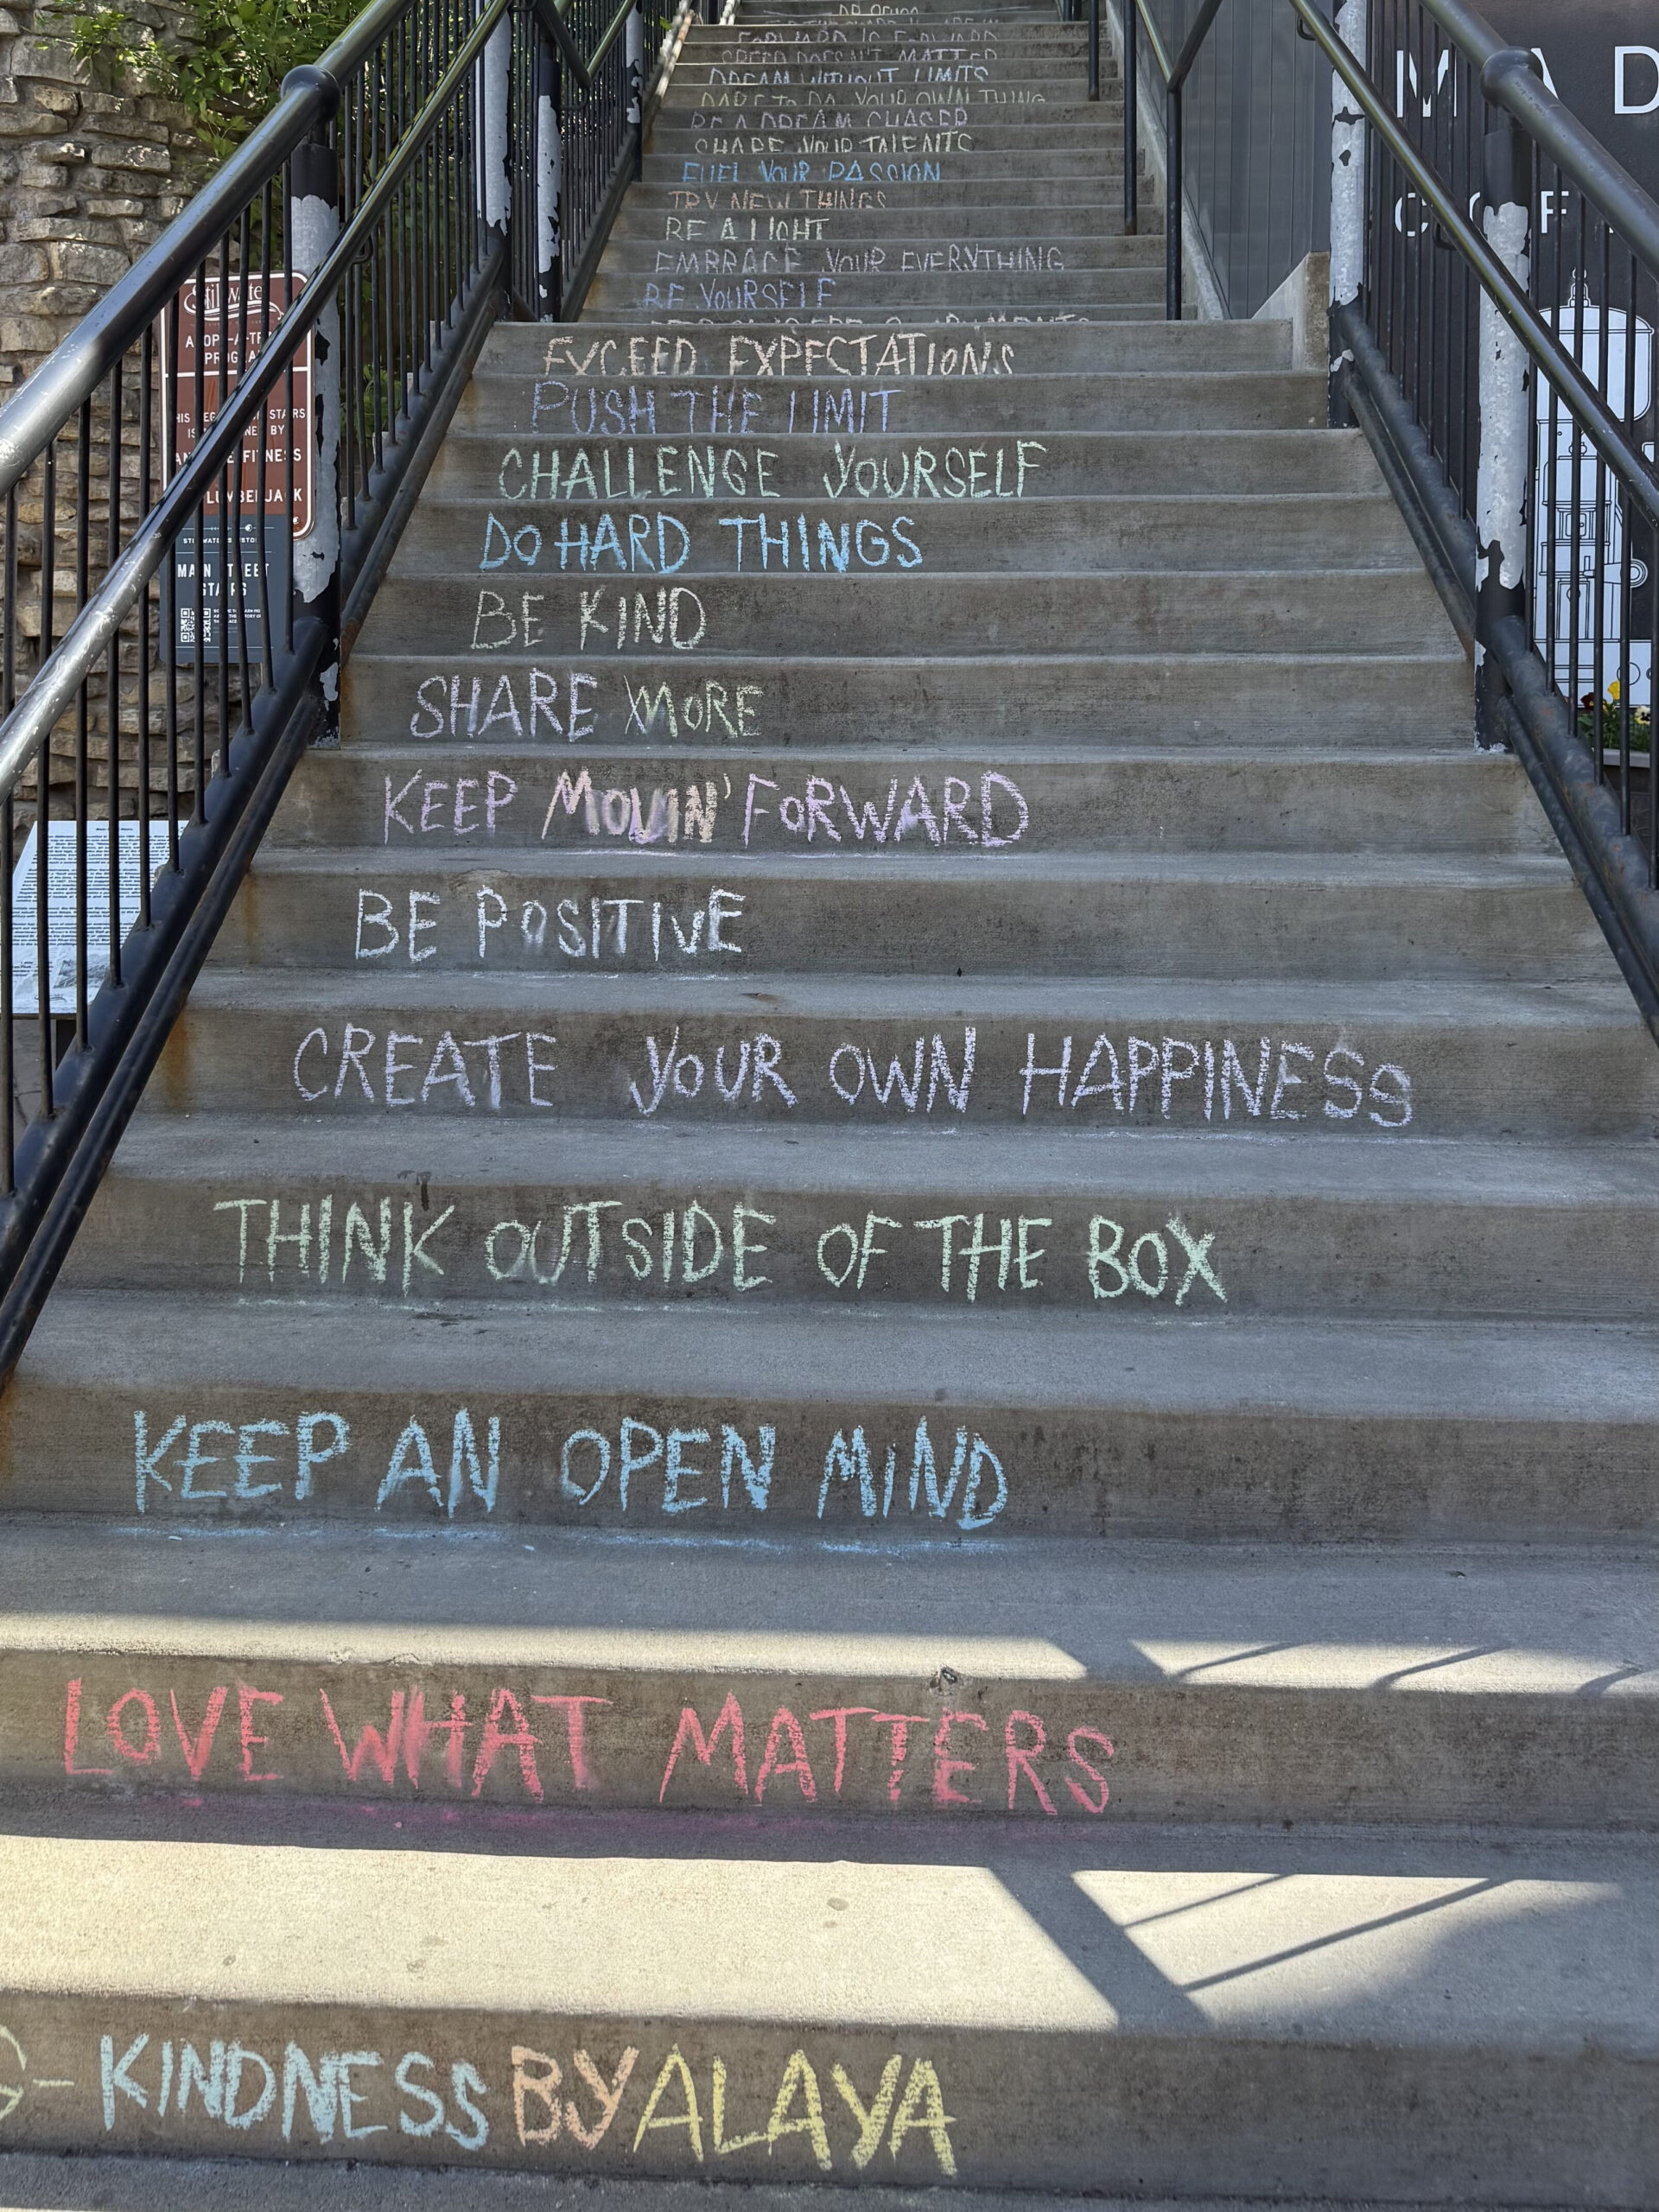 DR. SEUSS
FORWARD IS FORWARD
SPEED DOESN'T MATTER
DREAM WITHOUT LIMITS
DARE TO DO YOUR OWN THING
BE A DREAM CHASER
SHARE YOUR TALENTS
FUEL YOUR PASSION
TRY NEW THINGS
BE A LIGHT
EMBRACE YOUR EVERYTHING
BE YOURSELF
EXCEED EXPECTATIONS
PUSH THE LIMIT
CHALLENGE YOURSELF
DO HARD THINGS
BE KIND
SHARE MORE
KEEP MOVIN' FORWARD
BE POSITIVE
CREATE YOUR OWN HAPPINESS
THINK OUTSIDE OF THE BOX
KEEP AN OPEN MIND
LOVE WHAT MATTERS
G- KINDNESS BY ALAYA
Stillwater
PROGRAM
STAIRS
BY
FITNESS
LUMBERJACK
MAIN STREET
STAIRS
MAD